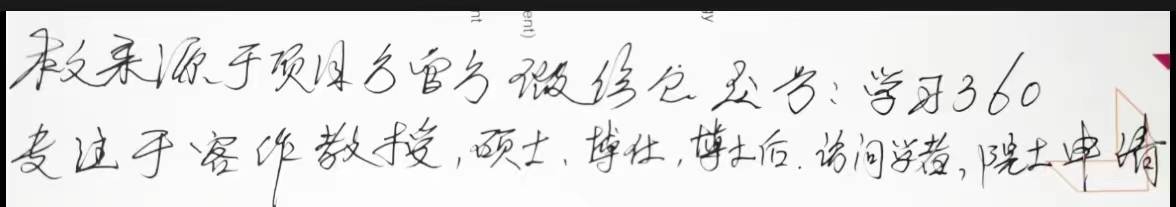 本文来源于项目方官方微信公众号：学习360
专注于客作教授，硕士、博仕，博士后．访问学者，院士申请
nt
ent)
gy